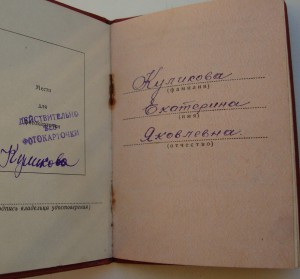 Место
для
ДЕЙСТВИТЕЛЬНО
БЕЗ
ФОТОКАРТОЧКИ
Куликова
подпись владельца удостоверения)
Куликова
(фамилия)
Екатерина
(имя)
Яковлевна.
(отчество)